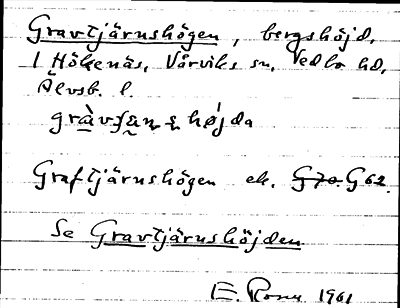 Gravtjärnshögen, bergshöjd,
i Hökenäs, Vårviks sn, Vedbo hd,
Älvsb. l.
Graftjärnshögen ek. G70. G62.
Se Gravtjärnshöjden
1961